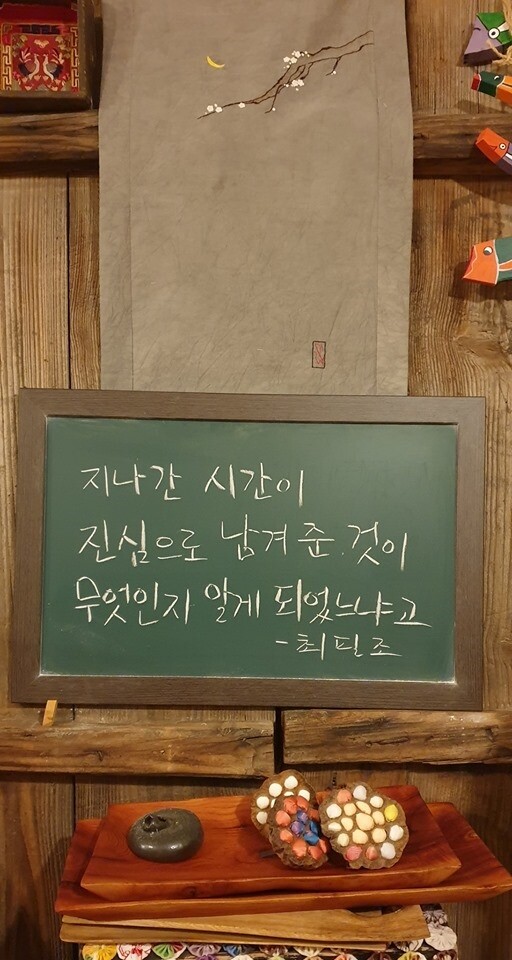 지나간 시간이
진심으로 남겨 준 것이
무엇인지 알게 되었느냐고
- 최필조